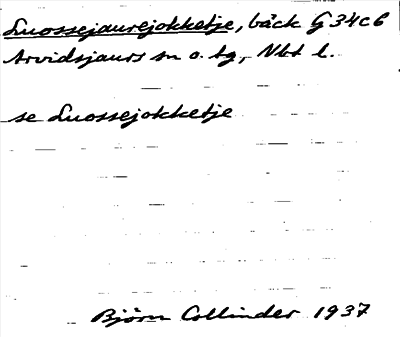 Luossejaurejokketje, bäck G 34 c b
Arvidsjaurs sn o. tg, Nbt l.
se Luossejokketje
Björn Collinder 1937